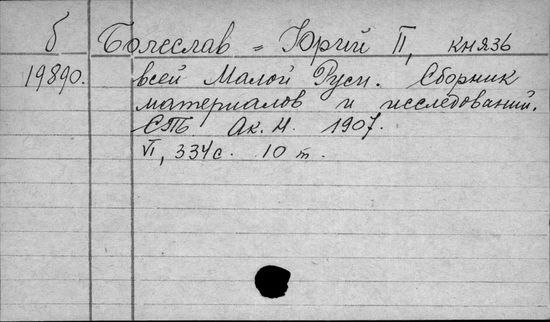 б Болеслав = Юрий II, князь
19890. всей Малой Руси. Сборник
материалов и исследований.
СПб Ак. Н. 1907.
VI, 334 с. 10 т.